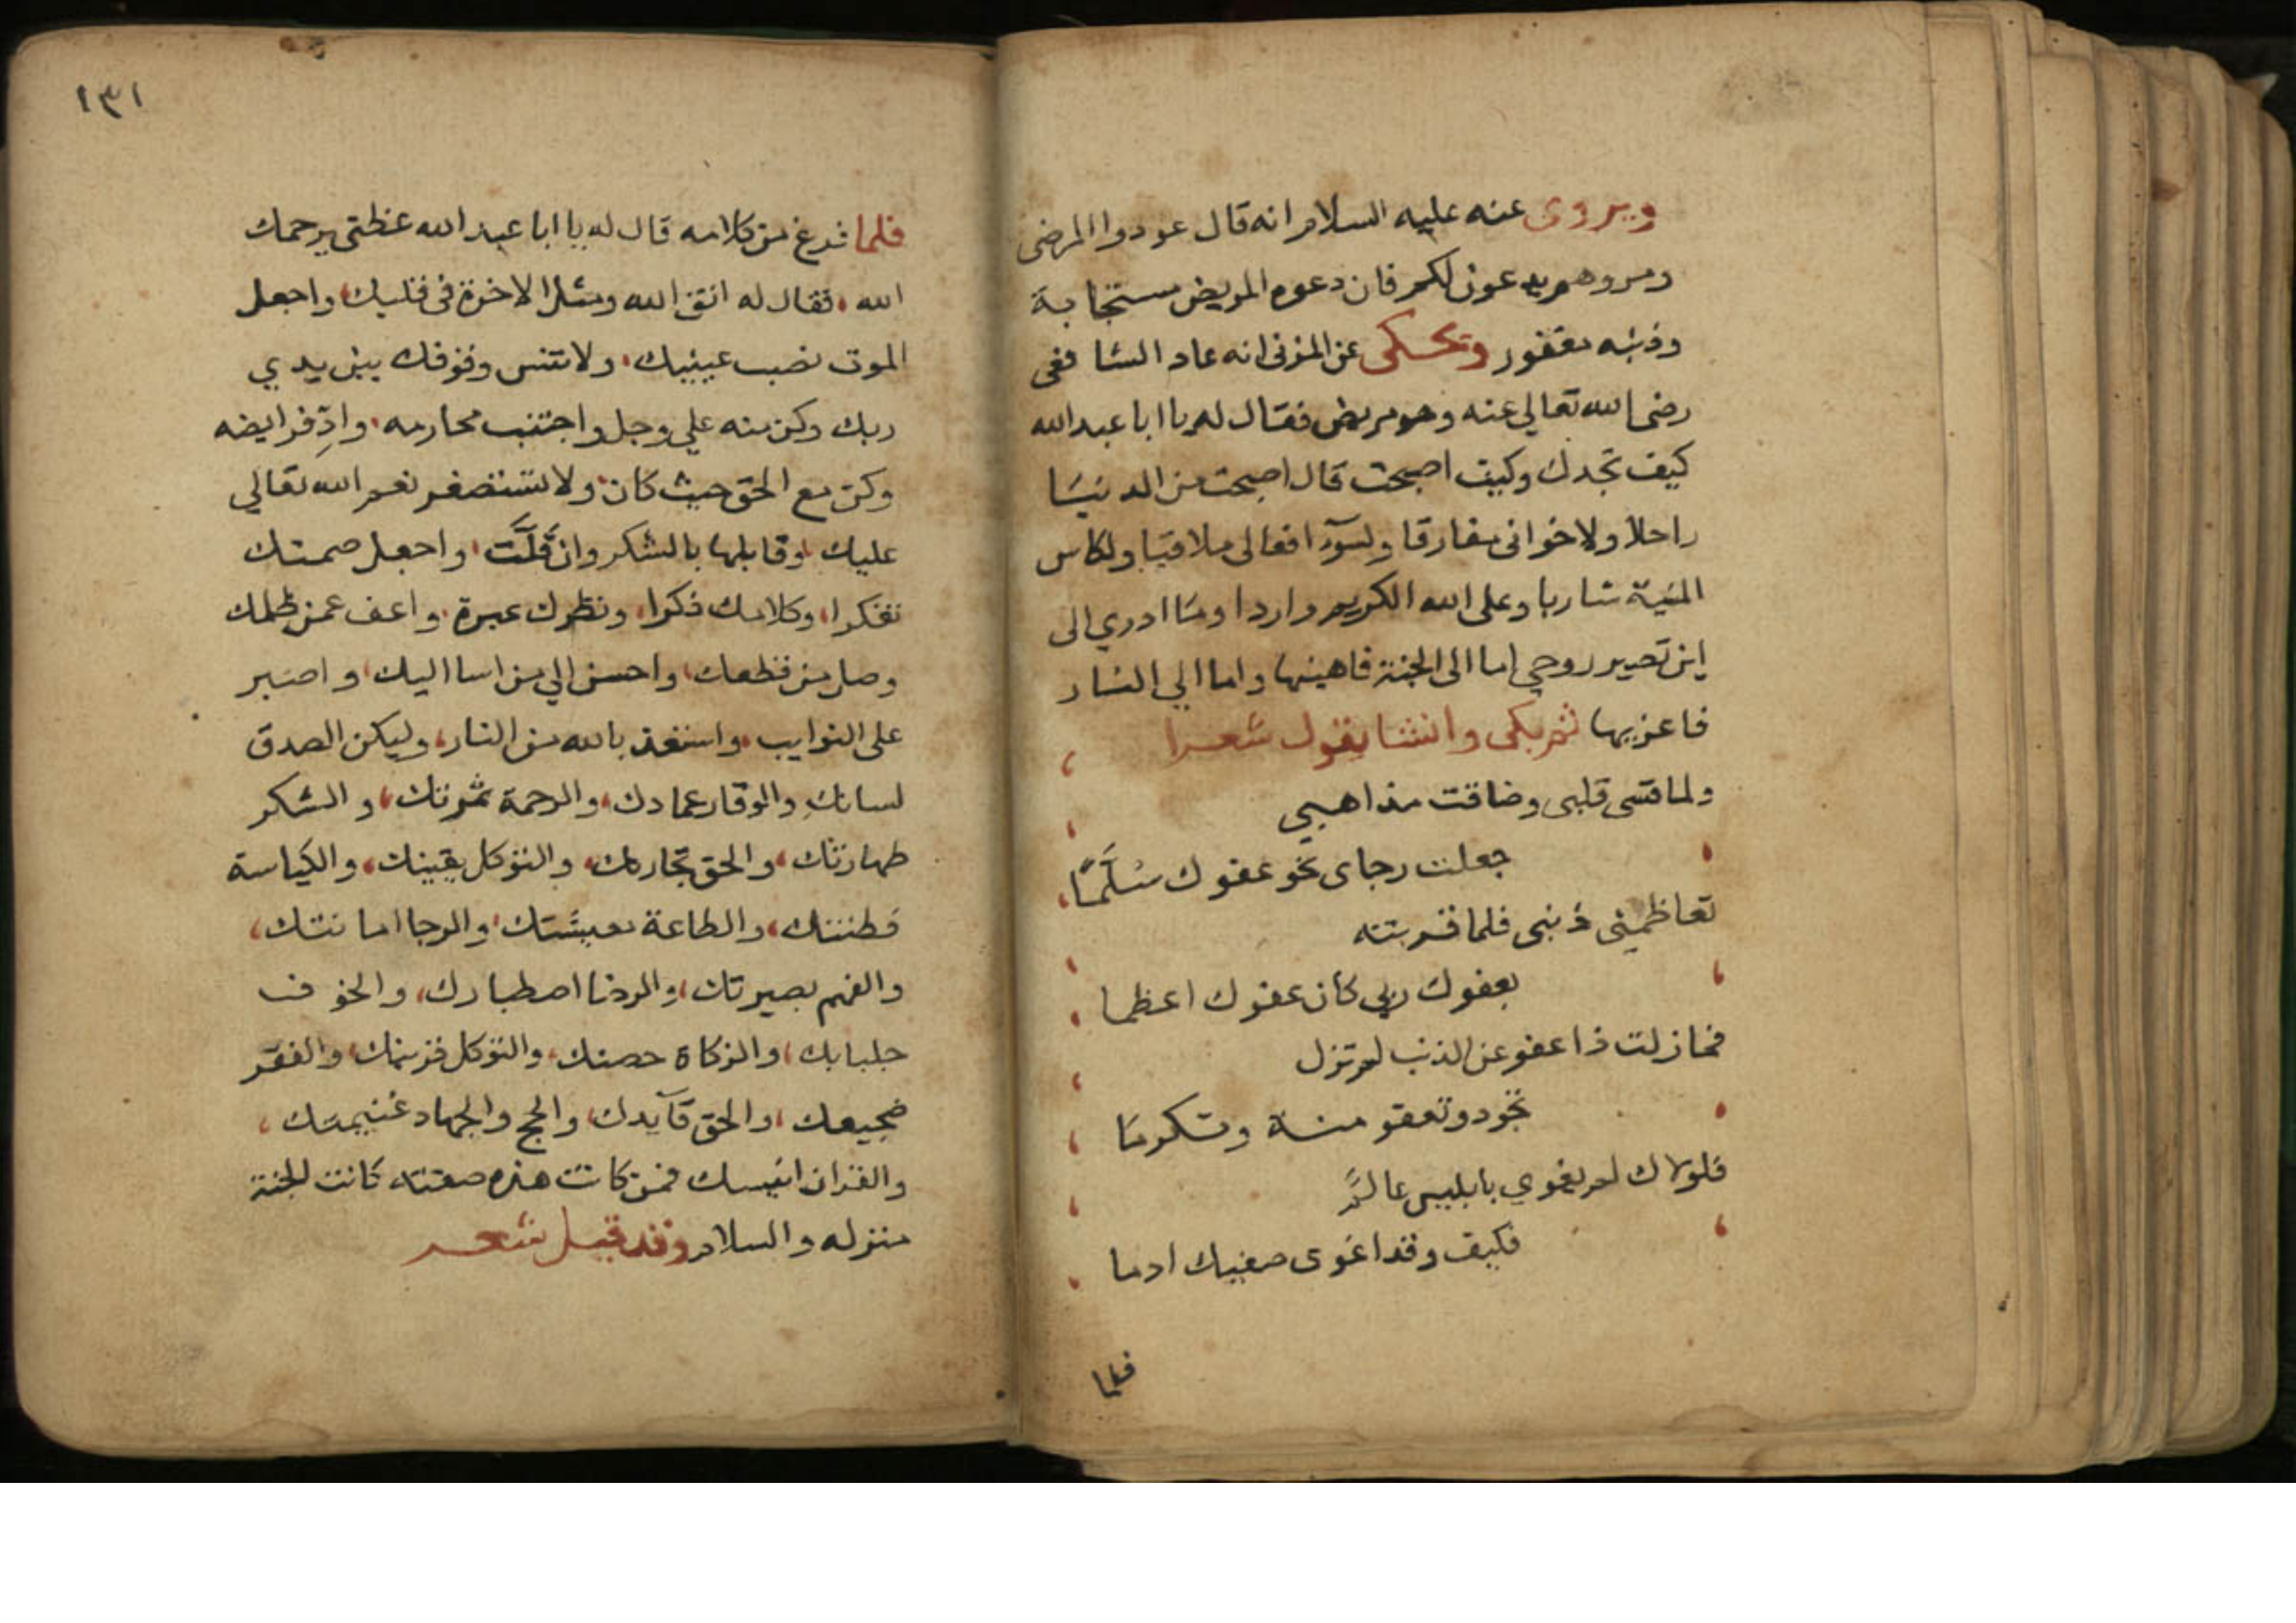 ويروى عنه عليه السلام انه قال عودوا المرضى
ومروهم يدعون لكم فان دعوه المريض مستجابة
وذنبه مغفور وتحكى عن المزنى انه عاد الشافعى
رضى الله تعالي عنه وهو مريض فقال له يا ابا عبد الله
كيف تجدك وكيف اصبحت قال اصبحت من الدنيا
راحلا ولاخوانى مفارقا ولسوٓء افعالى ملاقيا ولكاس
المنية شاربا وعلى الله الكريم واردا وما ادري الى
اين تصير روحي اما الى الجنة فاهنيها واما الي النار
فاعزيها ثم بكى وانشا يقول شعرا
ولما قسى قلبى وضاقت مذاهبي
جعلت رجاى نحو عفوك سُلَّمًا
تعاظمنى ذنبى فلما قربته
بعفوك ربي كان عفوك اعظما
فما زلت ذا عفو عن الذنب لم تزل
تجود وتعفو منة وتكرما
فلولاك لم يغوي بابليس عالم
فكيف وقد اغوى صفيك ادما
فلما
١٣١
فلما فرغ من كلامه قال له يا ابا عبد الله عظنى يرحمك
الله فقال له اتق الله ومثل الاخرة فى قلبك واجعل
الموت نصب عينيك ولا تنس وقوفك بين يدي
ربك وكن منه علي وجل واجتنب محارمه وادِّ فرايضه
وكن مع الحق حيث كان ولا تستصغر نعم الله تعالي
عليك وقابلها بالشكر وان قَلَّت واجعل صمتك
تفكرا وكلامك ذكرا ونظرك عبرة واعف عمن ظلمك
وصل من قطعك واحسن الي من اسا اليك واصبر
على النوايب واستعذ بالله من النار وليكن الصدق
لسانك والوقار عمادك والرحمة ثمرتك والشكر
طهارتك والحق تجارتك والتوكل يقينك والكياسة
فطنتك والطاعة معيشتك والرجا امانتك
والفهم بصيرتك والرضا اصطبارك والخوف
جلبابك والزكاة حصنك والتوكل قرينك والفقر
ضجيعك والحق قآيدك والحج والجهاد غنيمتك
والقران انيسك فمن كانت هذه صفته كانت الجنة
منزله والسلام وقد قيل شعر